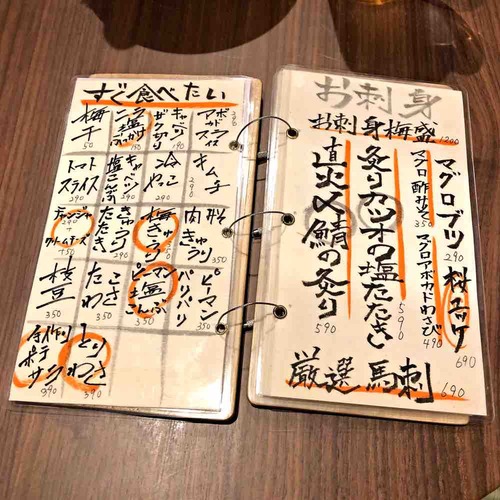 すぐ食べたい
アボカドスライス
キャベツザク切り 190
ニラ塩ぶっかけ
梅干 50
キムチ 290
冷やっこ
キャベツ塩こんぶ
トマトスライス 290
肉きゅうり 350
梅きゅうり 290
きゅうりたたき 290
チャンジャ 290
クリームチーズ +150
パリパリピーマン 350
ピーマン塩こんぶ 350
たこわさ 350
枝豆 350
とりわさ 390
手作りポテサラ 390
お刺身
お刺身梅盛 1200
マグロブツ 290
桜ユッケ 690
マグロ酢みそ 350
マグロアボカドわさび 490
炙りカツオの塩たたき 590
直火〆鯖の炙り 590
厳選馬刺 690